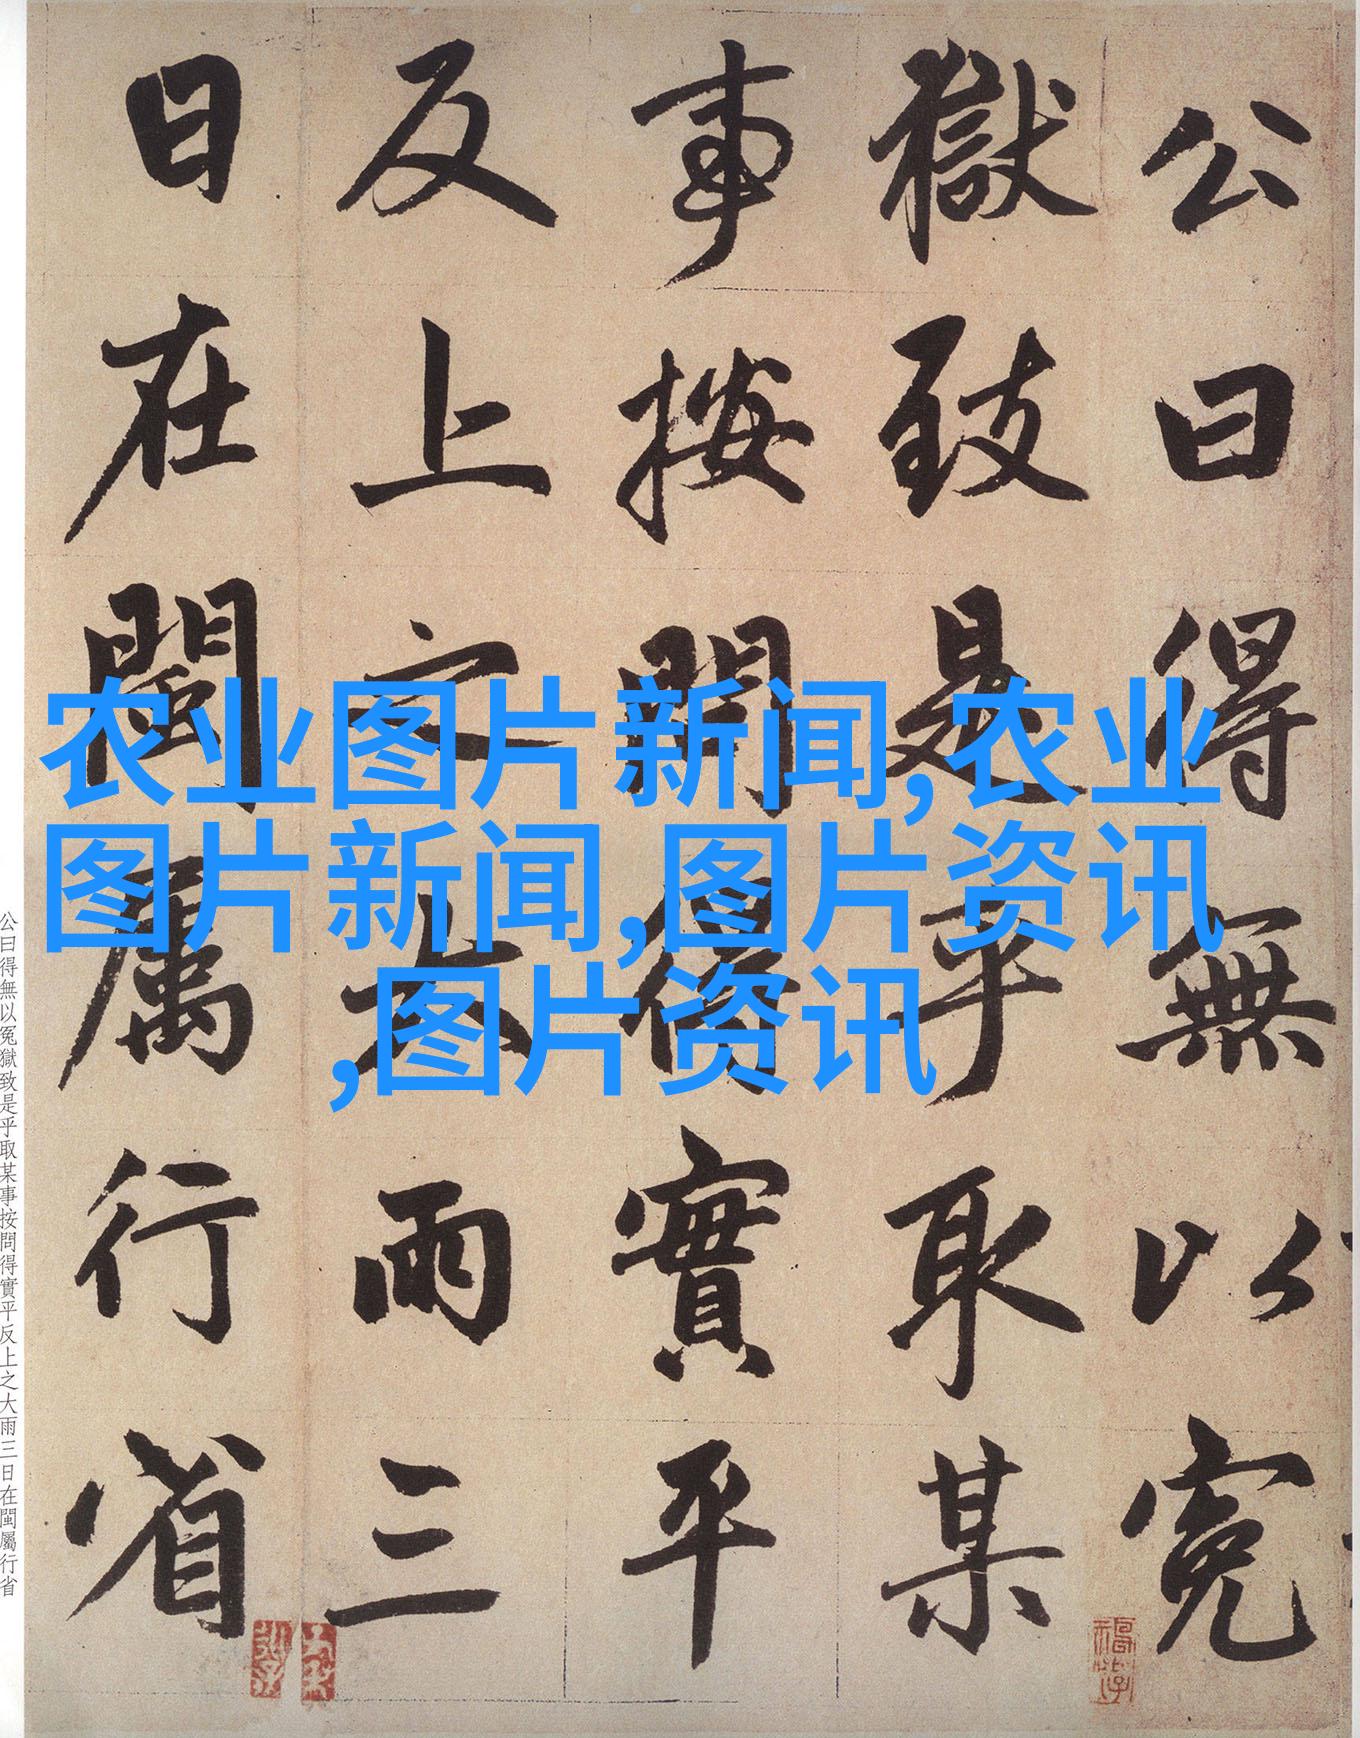 公曰得無以冤
獄致是乎取某
事按問得實平
反上之大雨三
日在閩属行省
农业图片新闻,农业
图片新闻,图片资讯
,图片资讯
公曰得無以冤獄致是乎取某事按問得實平反上之大雨三日在閩屬行省